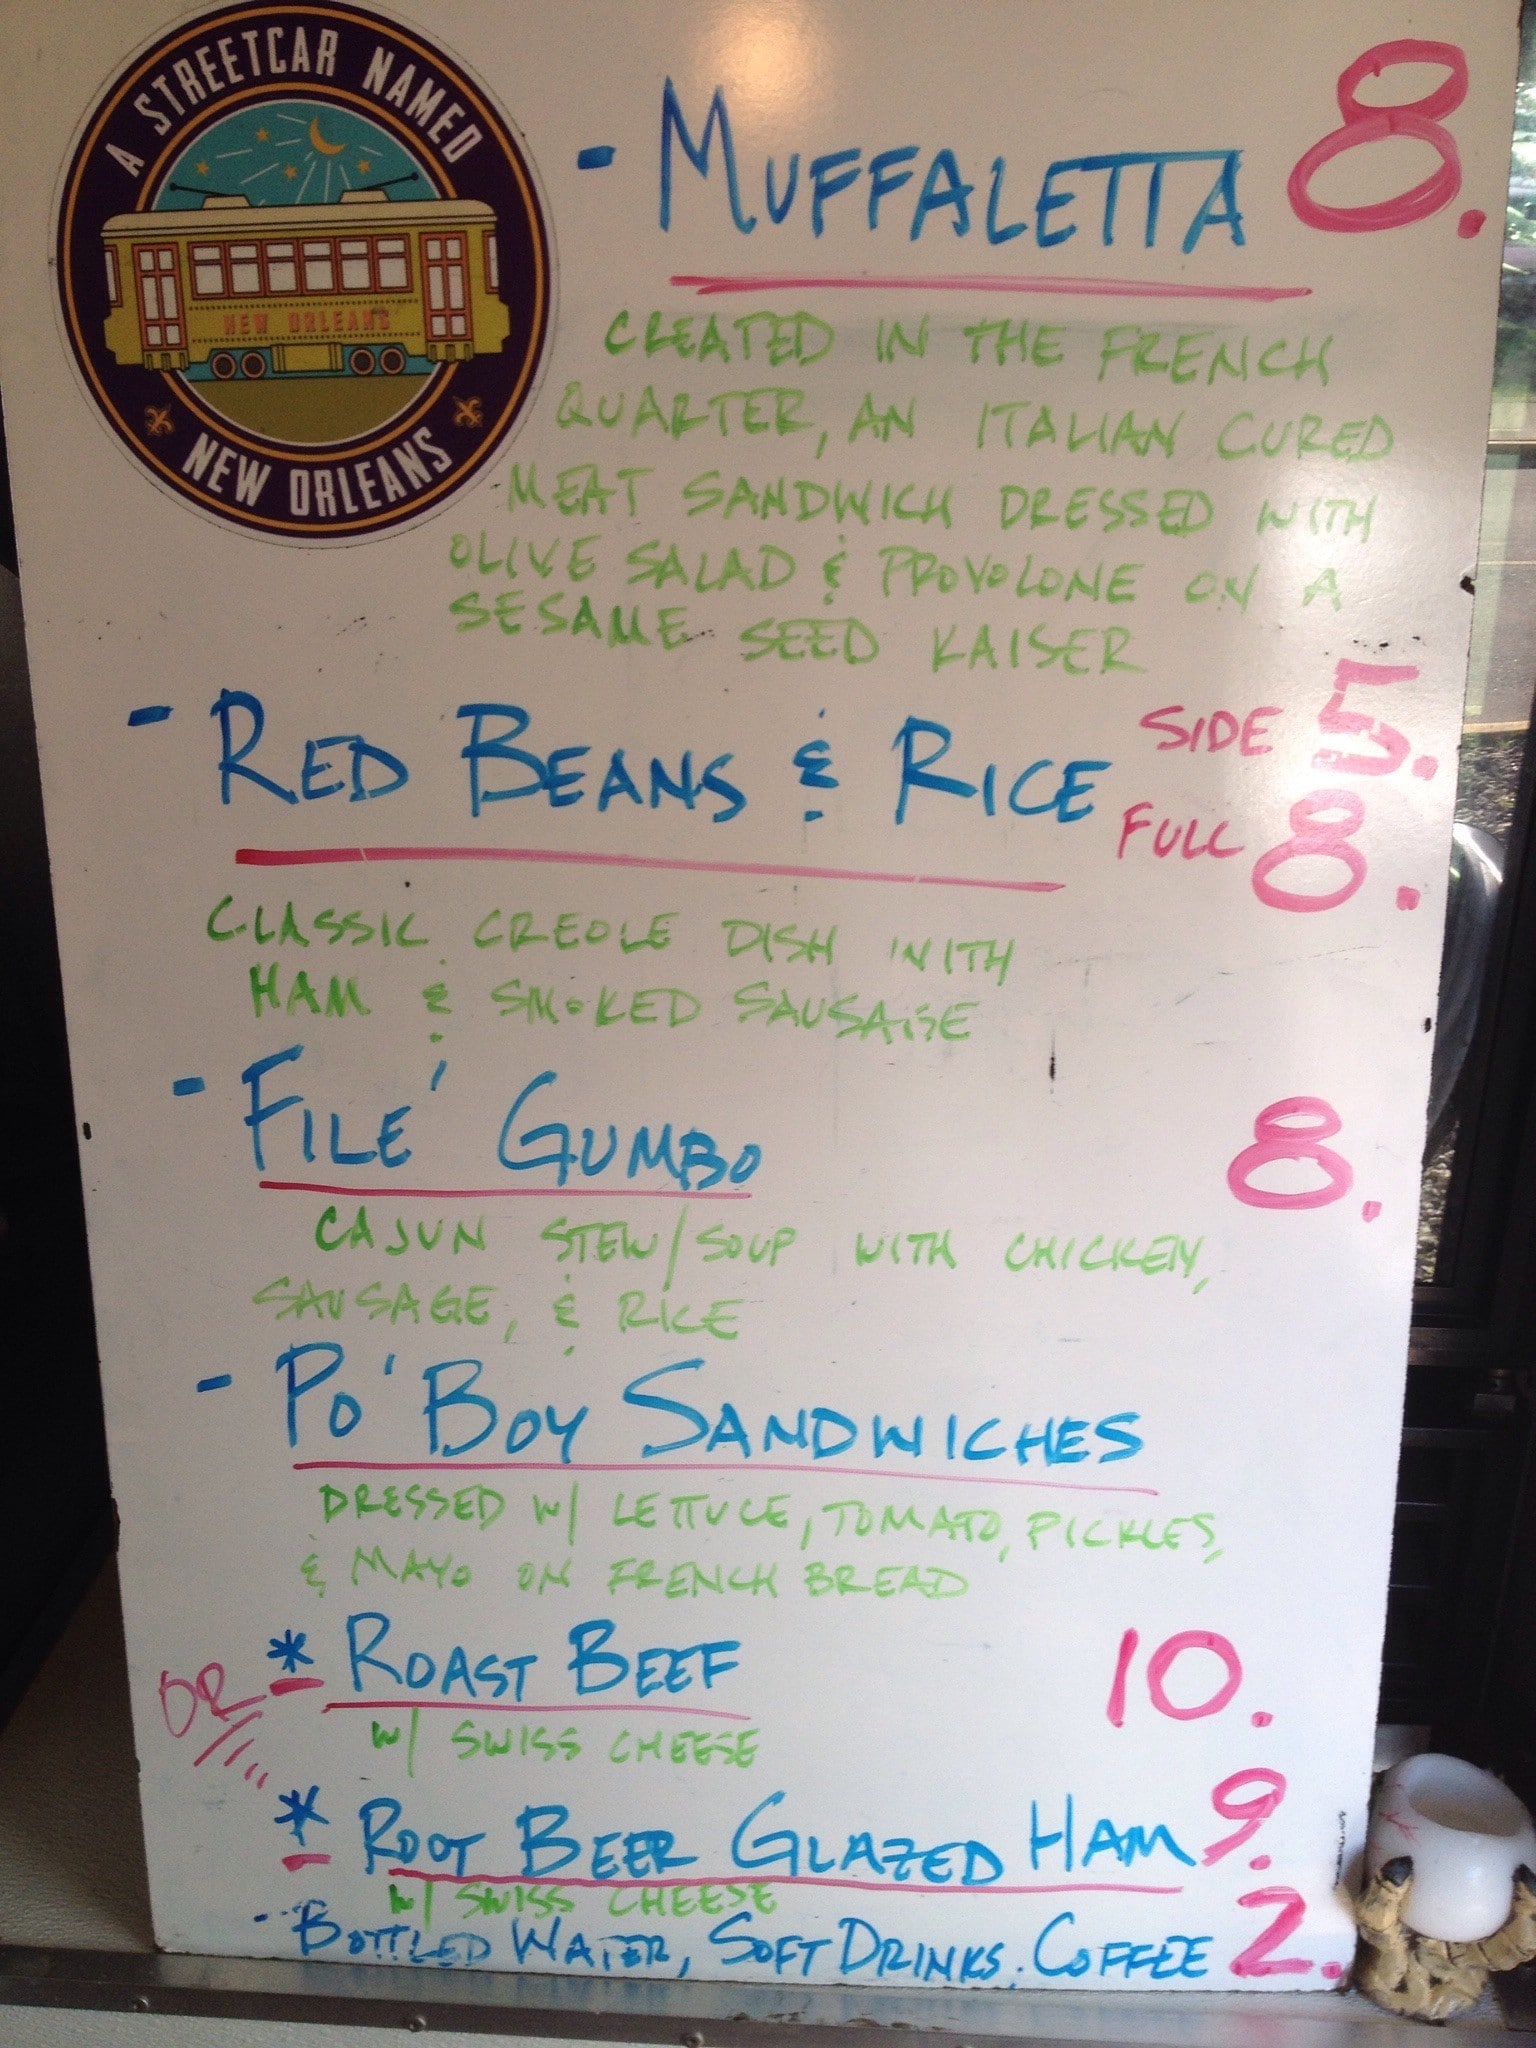 A STREETCAR NAMED
NEW ORLEANS
NEW ORLEANS
- MUFFALETTA 8.
CREATED IN THE FRENCH
QUARTER, AN ITALIAN CURED
MEAT SANDWICH DRESSED WITH
OLIVE SALAD & PROVOLONE ON A
SESAME SEED KAISER
- RED BEANS & RICE SIDE 5.
FULL 8.
CLASSIC CREOLE DISH WITH
HAM & SMOKED SAUSAGE
- FILE' GUMBO 8.
CAJUN STEW/SOUP WITH CHICKEN,
SAUSAGE, & RICE
- PO' BOY SANDWICHES
DRESSED W/ LETTUCE, TOMATO, PICKLES,
& MAYO ON FRENCH BREAD
* ROAST BEEF 10.
OR
W/ SWISS CHEESE
* ROOT BEER GLAZED HAM 9.
W/ SWISS CHEESE
- BOTTLED WATER, SOFT DRINKS, COFFEE 2.